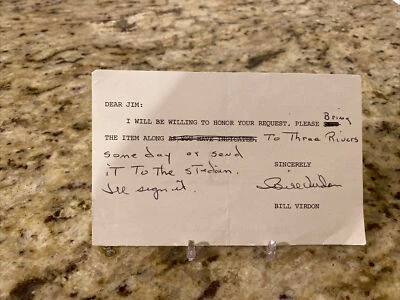 DEAR JIM:
I WILL BE WILLING TO HONOR YOUR REQUEST. PLEASE Bring
THE ITEM ALONG AS YOU HAVE INDICATED. To Three Rivers
some day or send
it To the stadium.
I'll sign it.
SINCERELY
Bill Virdon
BILL VIRDON